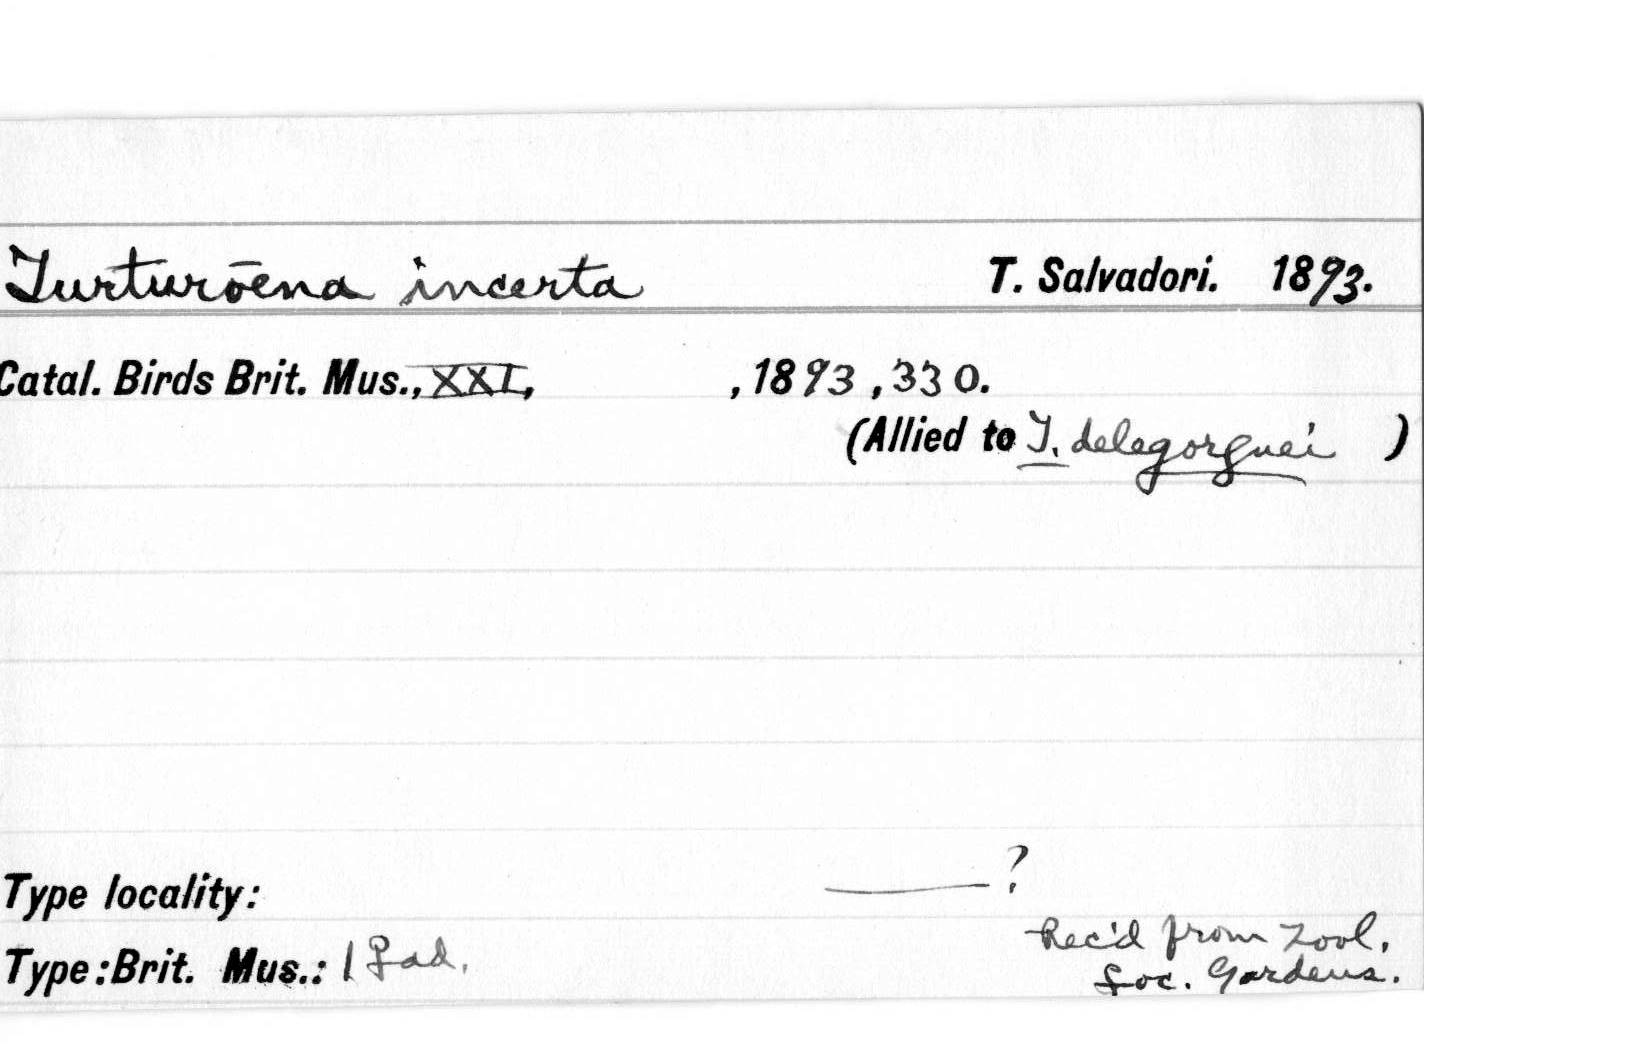 Turturōena incerta T. Salvadori. 1893.
Catal. Birds Brit. Mus., XXI, , 1893, 330.
(Allied to T. delegorguei )
Type locality: ——— ?
Rec'd from Zool.
Type: Brit. Mus.: 1 ♀ ad. Soc. Gardens.